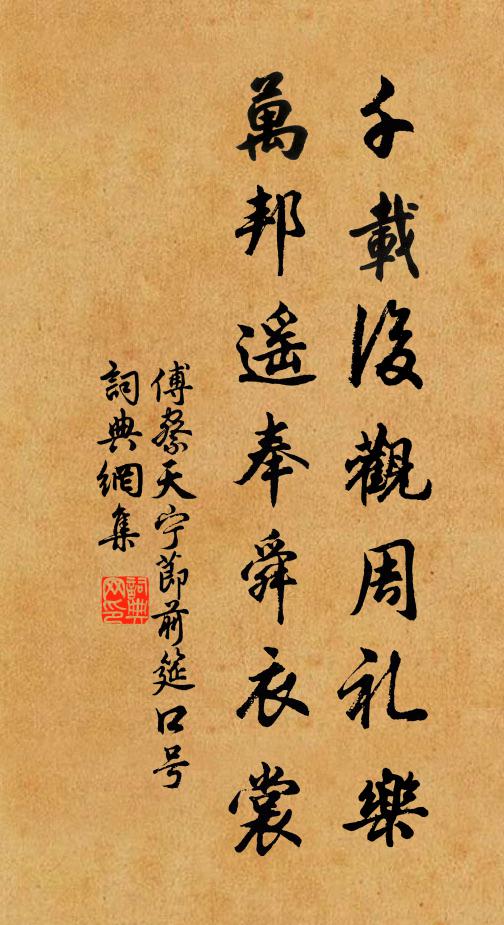 千載復觀周礼樂
萬邦遥奉舜衣裳
傅察天宁節前筵口号
詞典網集
詞典网印